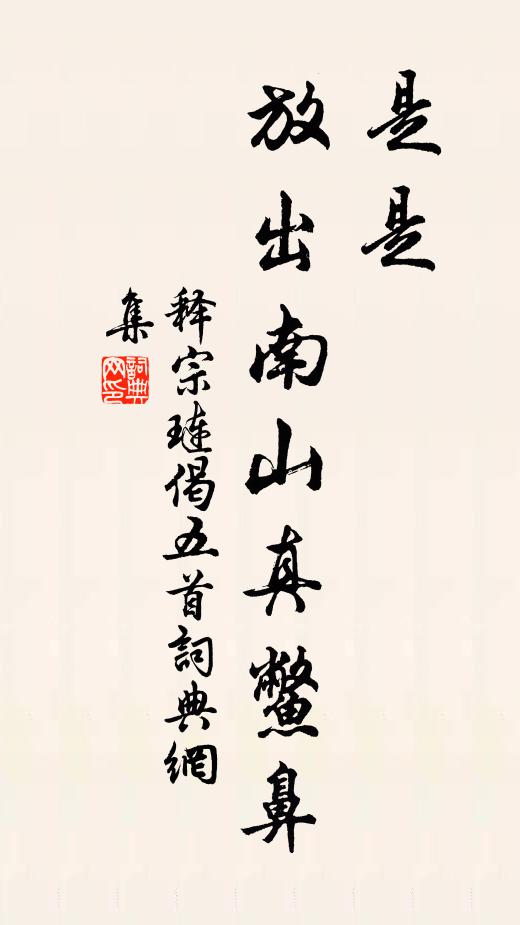 是是
放出南山真鱉鼻
释宗琏偈五首詞典網
集
詞典
网印